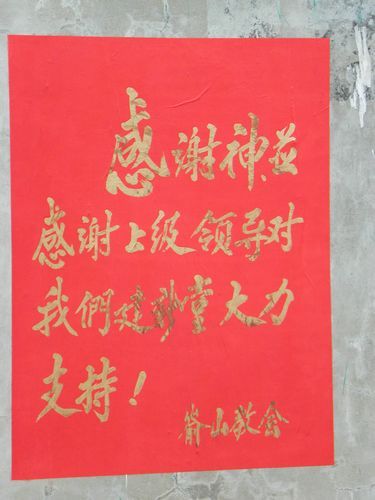 感谢神並
感谢上级领导对
我們建新堂大力
支持!
脊山教会